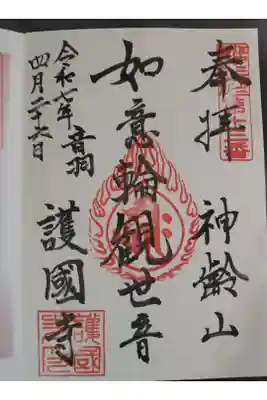 奉拝
神齢山
如意輪観世音
令和七年
四月二十六日
音羽
護國寺